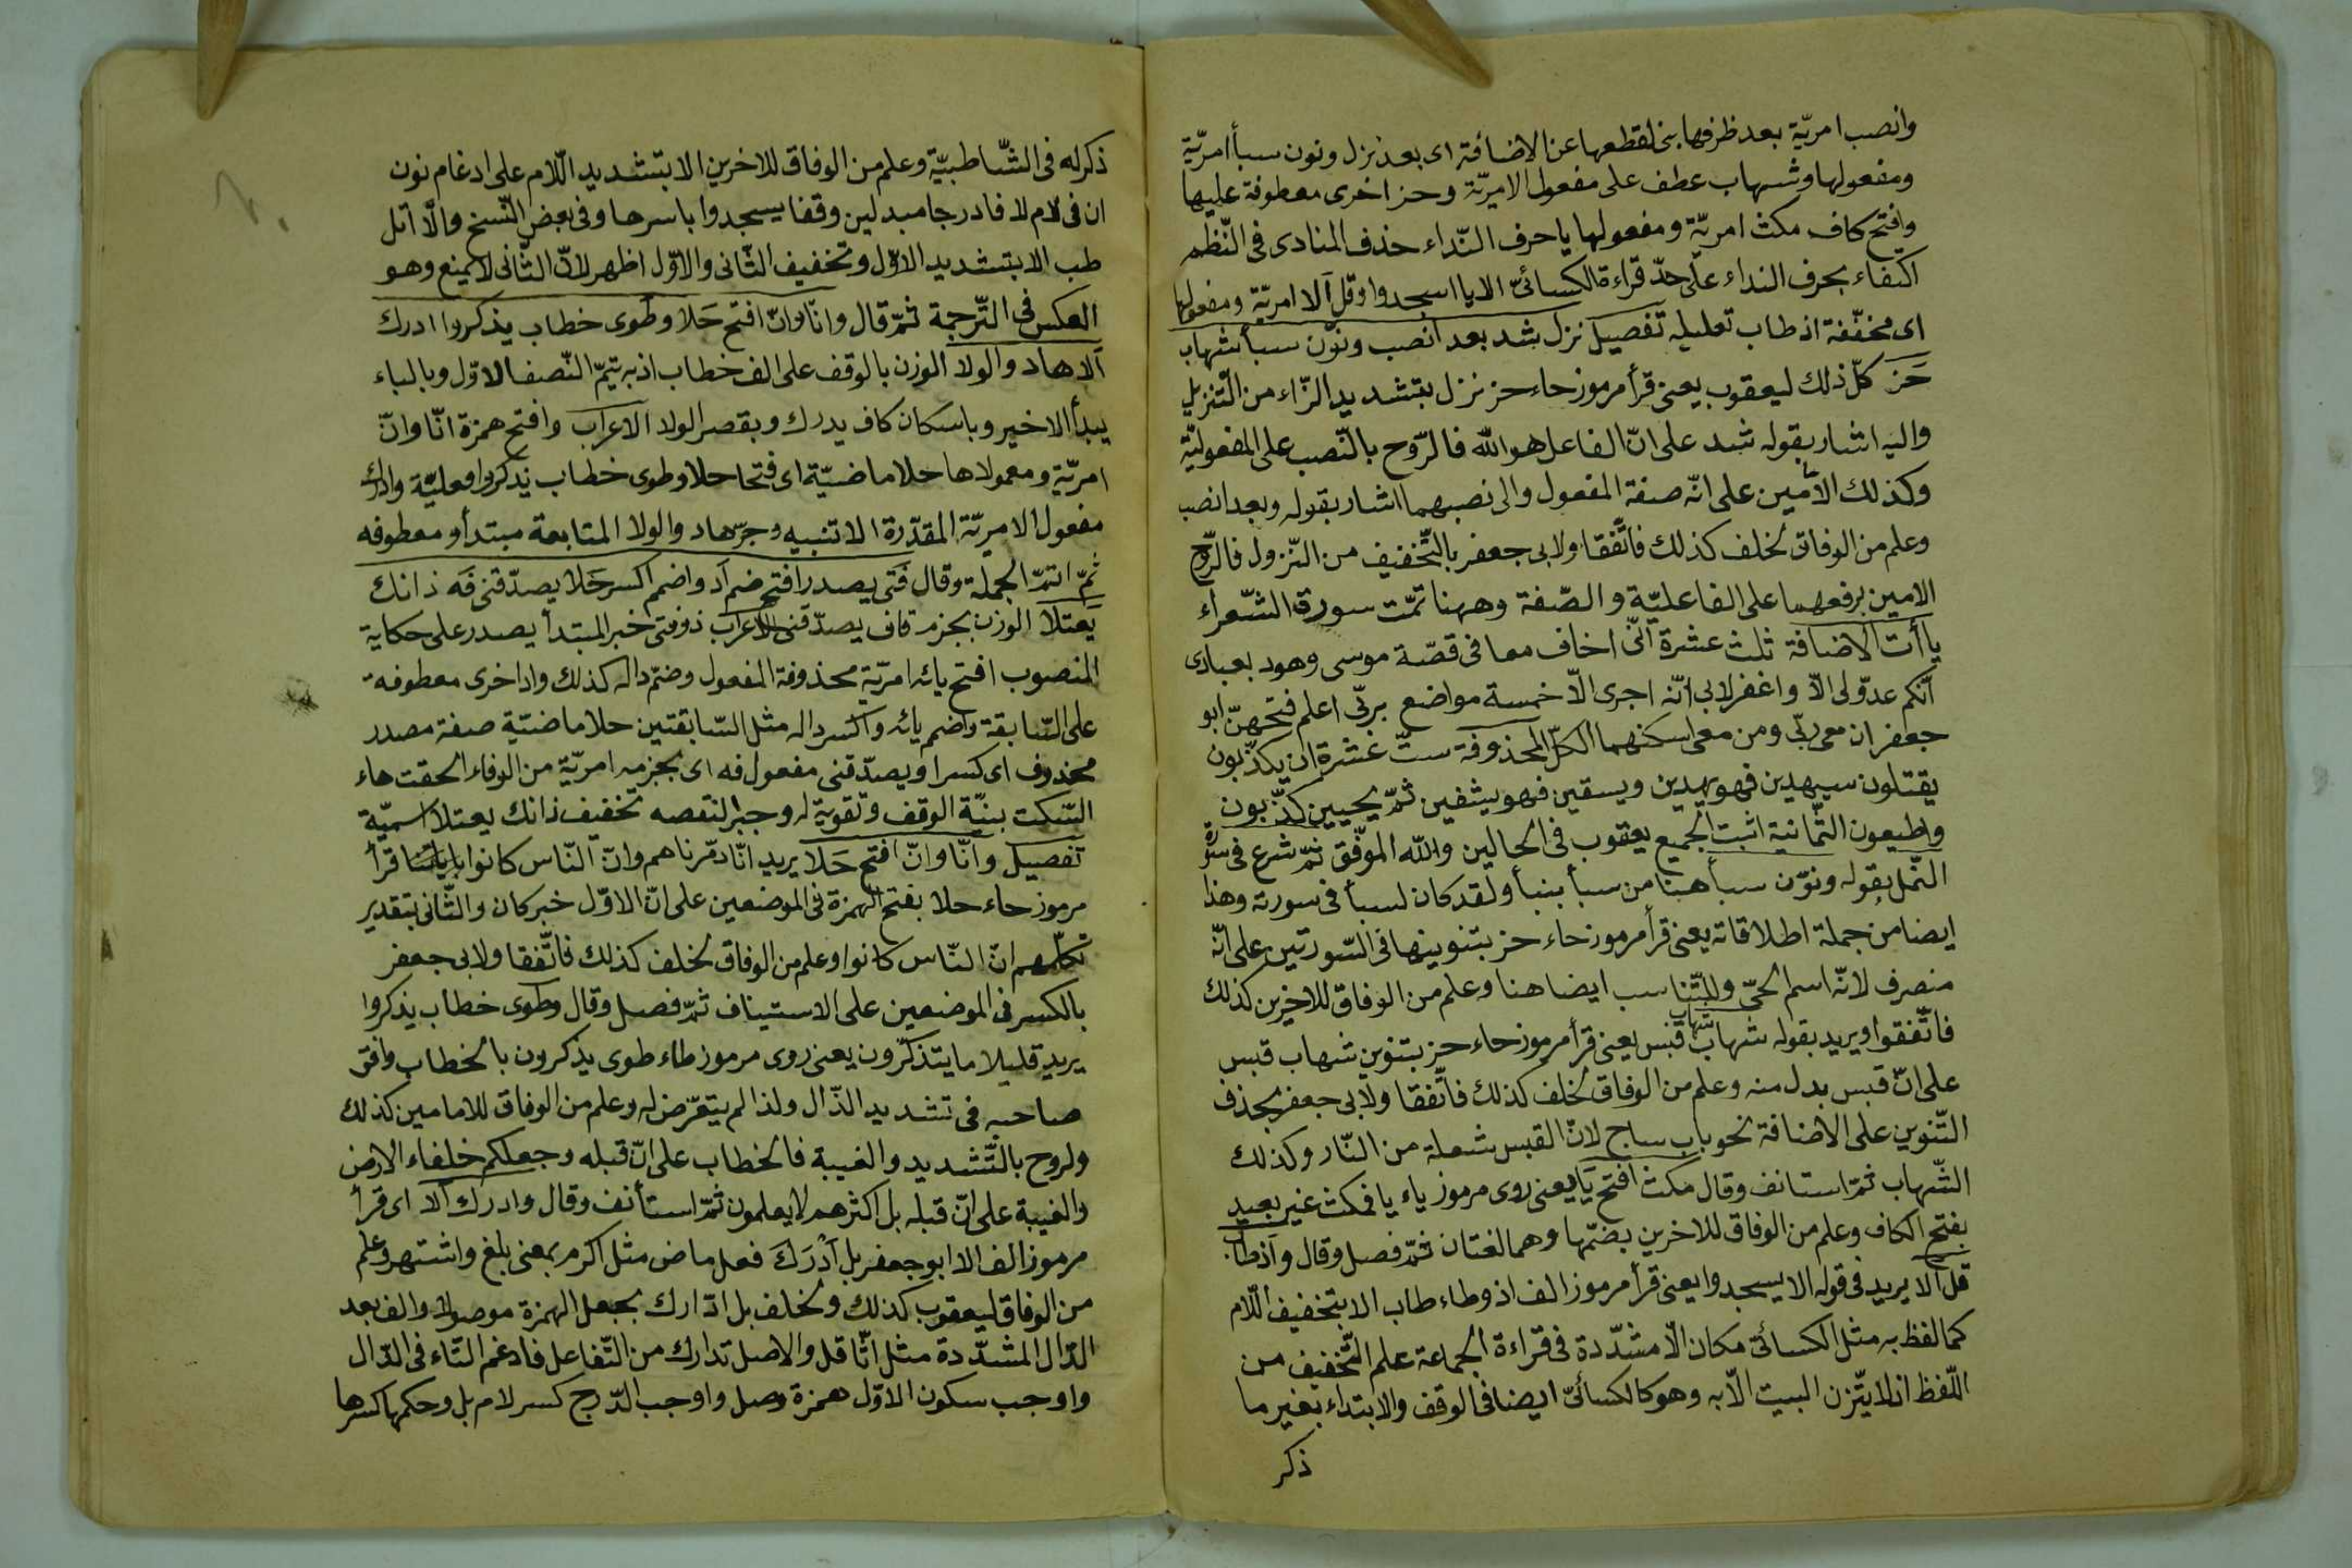 وانصب امريّة بعد ظرفها بنى لقطعها عن الاضافة اى بعد نزل ونون سبأ امريّة
ومفعولها وشهاب عطف على مفعول الامريّة وحز اخرى معطوفة عليها
وافتح كاف مكث امريّة ومفعولها يا حرف النّداء حذف المنادى فى النّظم
اكتفاء بحرف النداء على حدّ قراءة الكسائىّ الا يا اسجدوا وقل آلا امريّة ومفعولها
اى مخفّفة اذ طاب تعليله تفصيل نزل شد بعد انصب ونوّن سبأ شهاب
حَز كلّ ذلك ليعقوب يعنى قرأ مرموز حاء حز نزل بتشديد الزّاء من التّنزيل
واليه اشار بقوله شد على انّ الفاعل هو الله فالرّوح بالنّصب على المفعوليّة
وكذلك الأمين على انّه صفة المفعول والى نصبهما اشار بقوله وبعد انصب
وعلم من الوفاق لخلف كذلك فاتّفقا ولابى جعفر بالتّخفيف من النّزول فالرّوح
الامين برفعهما على الفاعليّة والصّفة وههنا تمّت سورة الشّعراء
ياأت الاضافة ثلث عشرة انّى اخاف معا فى قصّة موسى وهود بعبادى
انّكم عدوّ لى الّا واغفر لابى انّه اجرى الّا خمسة مواضع بربّى اعلم فتحهنّ ابو
جعفر ان معى ربّى ومن معى اسكنهما الكلّ المحذوفة ستّ عشرة ان يكذّبون
يقتلون سيهدين فهو يهدين ويسقين فهو يشفين ثمّ يحيين كذّبون
واطيعون الثّمانية اثبت الجميع يعقوب فى الحالين والله الموفّق ثمّ شرع فى سورة
النّمل بقوله ونوّن سبأ هنا من سبأ بنبأ ولقد كان لسبأ فى سورته وهذا
ايضا من جملة اطلاقاته يعنى قرأ مرموز حاء حز بتنوينها فى السّورتين على انّه
منصرف لانّه اسم الحىّ وللتّناسب ايضا هنا وعلم من الوفاق للاخرين كذلك
فاتّفقوا ويريد بقوله شهاب شهاب قبس يعنى قرأ مرموز حاء حز بتنوين شهاب قبس
على انّ قبس بدل منه وعلم من الوفاق لخلف كذلك فاتّفقا ولابى جعفر بحذف
التّنوين على الاضافة نحو باب ساج لانّ القبس شعلة من النّار وكذلك
الشّهاب ثمّ استانف وقال مكث افتح يَا يعنى روى مرموز ياء يا فمكث غير بعيد
بفتح الكاف وعلم من الوفاق للاخرين بضمّها وهما لغتان ثمّ فصل وقال واذ طاب
قل آلا يريد فى قوله الا يسجدوا يعنى قرأ مرموز الف اذ وطاء طاب الا بتخفيف اللّام
كما لفظ به مثل الكسائىّ مكان الّا مشدّدة فى قراءة الجماعة علم التّخفيف من
اللّفظ اذ لا يتّزن البيت الّا به وهو كالكسائىّ ايضا فى الوقف والابتداء بغير ما
ذكر
ذكر له فى الشّاطبيّة وعلم من الوفاق للاخرين الا بتشديد اللّام على ادغام نون
ان فى لام لا فادرجا مبدلين وقفا يسجدوا باسرها وفى بعض النّسخ والّا اتل
طب الا بتشديد الاوّل وتخفيف الثّانى والاوّل اظهر لانّ الثّانى لا يمنع وهو
العكس فى التّرجمة ثمّ قال وانّا وانّ افتح حَلا وطوى خطاب يذكروا ادرك
آلا هاد والولا الوزن بالوقف على الف خطاب اذ به يتمّ النّصف الاوّل وبالباء
يبدأ الاخير وباسكان كاف يدرك وبقصر الولا الاعراب وافتح همزة انّا وانّ
امريّة ومعمولاها حلا ماضيّة اى فتحا حلا وطوى خطاب يذكروا فعليّة وادرك
مفعول الامريّة المقدّرة الا تنبيه وجرّ هاد والولا المتابعة مبتدأ ومعطوفه
ثمّ اتمّ الجملة وقال فَتى يصدر افتح ضم اُد واضمم اكسر حَلا يصدّقنى فَه ذانك
يَعتلا الوزن بجزم قاف يصدّقنى الاعراب ذو فتى خبر المبتدأ يصدر على حكاية
المنصوب افتح يائه امريّة محذوفة المفعول وضمّ داله كذلك واد اخرى معطوفة
على السّابقة واضمم يائه واكسر داله مثل السّابقتين حلا ماضيّة صفة مصدر
محذوف اى كسرا ويصدّقنى مفعول فه اى بجزمه امريّة من الوفاء الحقت هاء
السّكت بنيّة الوقف وتقوية له وجبرا لنقصه تخفيف ذانك يعتلا اسميّة
تفصيل وانّا وانّ افتح حَلا يريد انّا دمّرناهم وانّ النّاس كانوا باياتنا قرأ
مرموز حاء حلا بفتح الهمزة فى الموضعين على انّ الاوّل خبر كان والثّانى بتقدير
تكلّمهم انّ النّاس كانوا وعلم من الوفاق لخلف كذلك فاتّفقا ولابى جعفر
بالكسر فى الموضعين على الاستيناف ثمّ فصل وقال وطوى خطاب يذكروا
يريد قليلا ما يتذكّرون يعنى روى مرموز طاء طوى يذكرون بالخطاب وافق
صاحبه فى تشديد الذّال ولذا لم يتعرّض له وعلم من الوفاق للامامين كذلك
ولروح بالتّشديد والغيبة فالخطاب على انّ قبله وجعلكم خلفاء الارض
والغيبة على انّ قبله بل اكثرهم لا يعلمون ثمّ استأنف وقال وادرك الا اى قرأ
مرموز الف الا ابو جعفر بل اَدْرَكَ فعل ماض مثل اكرم بمعنى بلغ واشتهر وعلم
من الوفاق ليعقوب كذلك ولخلف بل ادّارك بجعل الهمزة موصولا والف بعد
الدّال المشدّدة مثل اثّاقل والاصل تدارك من التّفاعل فادغم التّاء فى الدّال
واوجب سكون الاوّل همزة وصل واوجب الدّرج كسر لام بل وحكمها كسرها